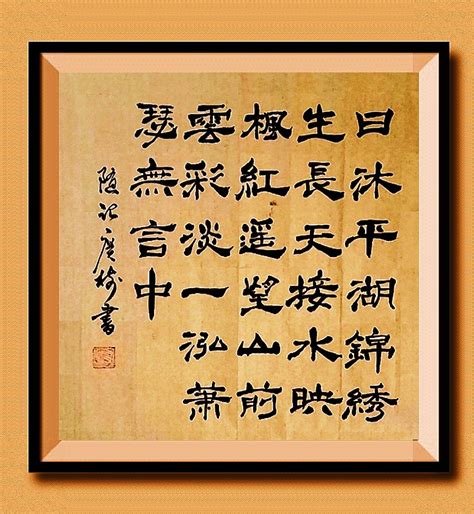 日沐平湖錦綉
生長天接水映
楓紅遥望山前
雲彩淡一泓蕭
瑟無言中
書